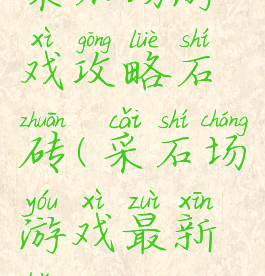 xì gōng lüè shí
戏攻略石
zhuān cǎi shí cháng
砖(采石场
yóu xì zuì xīn
游戏最新